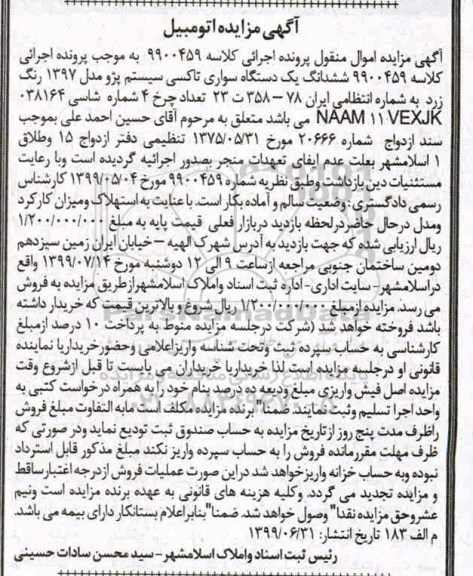 آگهی مزایده اتومبیل
آگهی مزایده اموال منقول پرونده اجرائی کلاسه ۹۹۰۰۴۵۹ به موجب پرونده اجرائی
کلاسه ۹۹۰۰۴۵۹ ششدانگ یک دستگاه سواری تاکسی سیستم پژو مدل ۱۳۹۷ رنگ
زرد به شماره انتظامی ایران ۷۸ – ۳۵۸ ت ۲۳ تعداد چرخ ۴ شماره شاسی ۰۳۸۱۶۴
NAAM ۱۱ VEXJK می باشد متعلق به مرحوم آقای حسین احمد علی بموجب
سند ازدواج شماره ۲۰۶۶۶ مورخ ۱۳۷۵/۰۵/۳۱ تنظیمی دفتر ازدواج ۱۵ وطلاق
۱ اسلامشهر بعلت عدم ایفای تعهدات منجر بصدور اجرائیه گردیده است وبا رعایت
مستثنیات دین بازداشت وطبق نظریه شماره ۹۹۰۰۴۵۹ مورخ ۱۳۹۹/۰۵/۰۴ کارشناس
رسمی دادگستری: وضعیت سالم و آماده بکار است. با عنایت به استهلاک ومیزان کارکرد
ومدل درحال حاضر درلحظه بازدید دربازار فعلی قیمت پایه به مبلغ ۱/۲۰۰/۰۰۰/۰۰۰
ریال ارزیابی شده که جهت بازدید به آدرس شهرک الهیه – خیابان ایران زمین سیزدهم
دومین ساختمان جنوبی مراجعه ازساعت ۹ الی ۱۲ دوشنبه مورخ ۱۳۹۹/۰۷/۱۴ واقع
دراسلامشهر- سایت اداری- اداره ثبت اسناد واملاک اسلامشهر ازطریق مزایده به فروش
می رسد. مزایده ازمبلغ ۱/۲۰۰/۰۰۰/۰۰۰ ریال شروع و بالاترین قیمت که خریدار داشته
باشد فروخته خواهد شد (شرکت درجلسه مزایده منوط به پرداخت ۱۰ درصد ازمبلغ
کارشناسی به حساب سپرده ثبت وتحت شناسه واریز اعلامی وحضور خریدار یا نماینده
قانونی او درجلسه مزایده است لذا خریدار یا خریداران می بایست تا قبل ازشروع وقت
مزایده اصل فیش واریزی مبلغ ودیعه ده درصد بنام خود را به همراه درخواست کتبی به
واحد اجرا تسلیم وثبت نمایند. ضمنا" برنده مزایده مکلف است مابه التفاوت مبلغ فروش
راظرف مدت پنج روز از تاریخ مزایده به حساب صندوق ثبت تودیع نماید ودر صورتی که
ظرف مهلت مقرر مانده فروش را به حساب سپرده واریز نکند مبلغ مذکور قابل استرداد
نبوده وبه حساب خزانه واریز خواهد شد دراین صورت عملیات فروش از درجه اعتبار ساقط
و مزایده تجدید می گردد. وکلیه هزینه های قانونی به عهده برنده مزایده است ونیم
عشر وحق مزایده نقدا" وصول خواهد شد. ضمنا" بنابر اعلام بستانکار دارای بیمه می باشد.
م الف ۱۸۳ تاریخ انتشار: ۱۳۹۹/۰۶/۳۱
رئیس ثبت اسناد واملاک اسلامشهر- سید محسن سادات حسینی